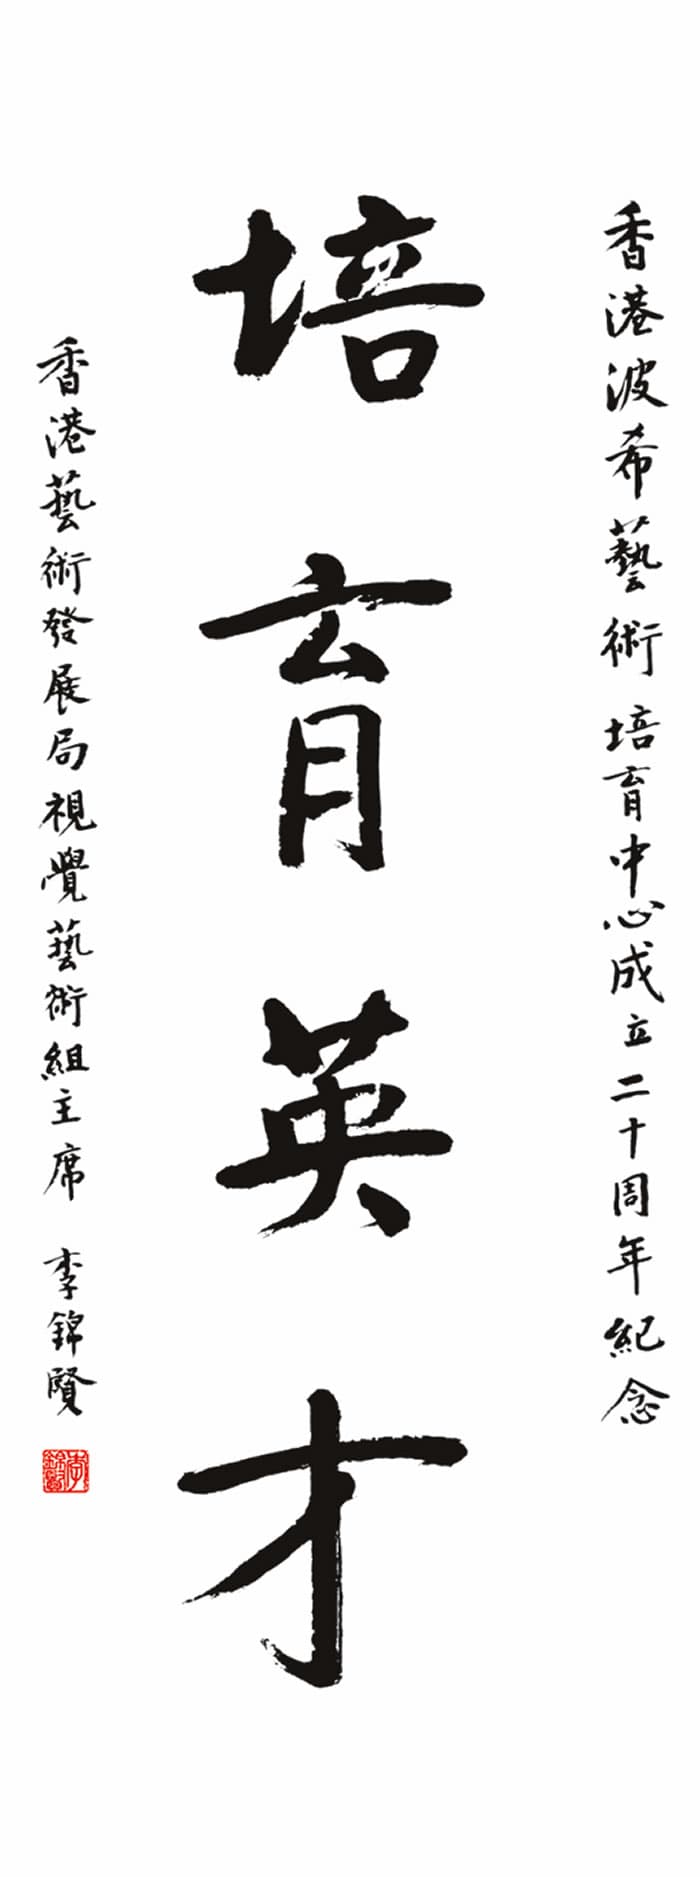 香港波希藝術培育中心成立二十周年紀念
培育英才
香港藝術發展局視覺藝術組主席 李錦賢
李錦賢